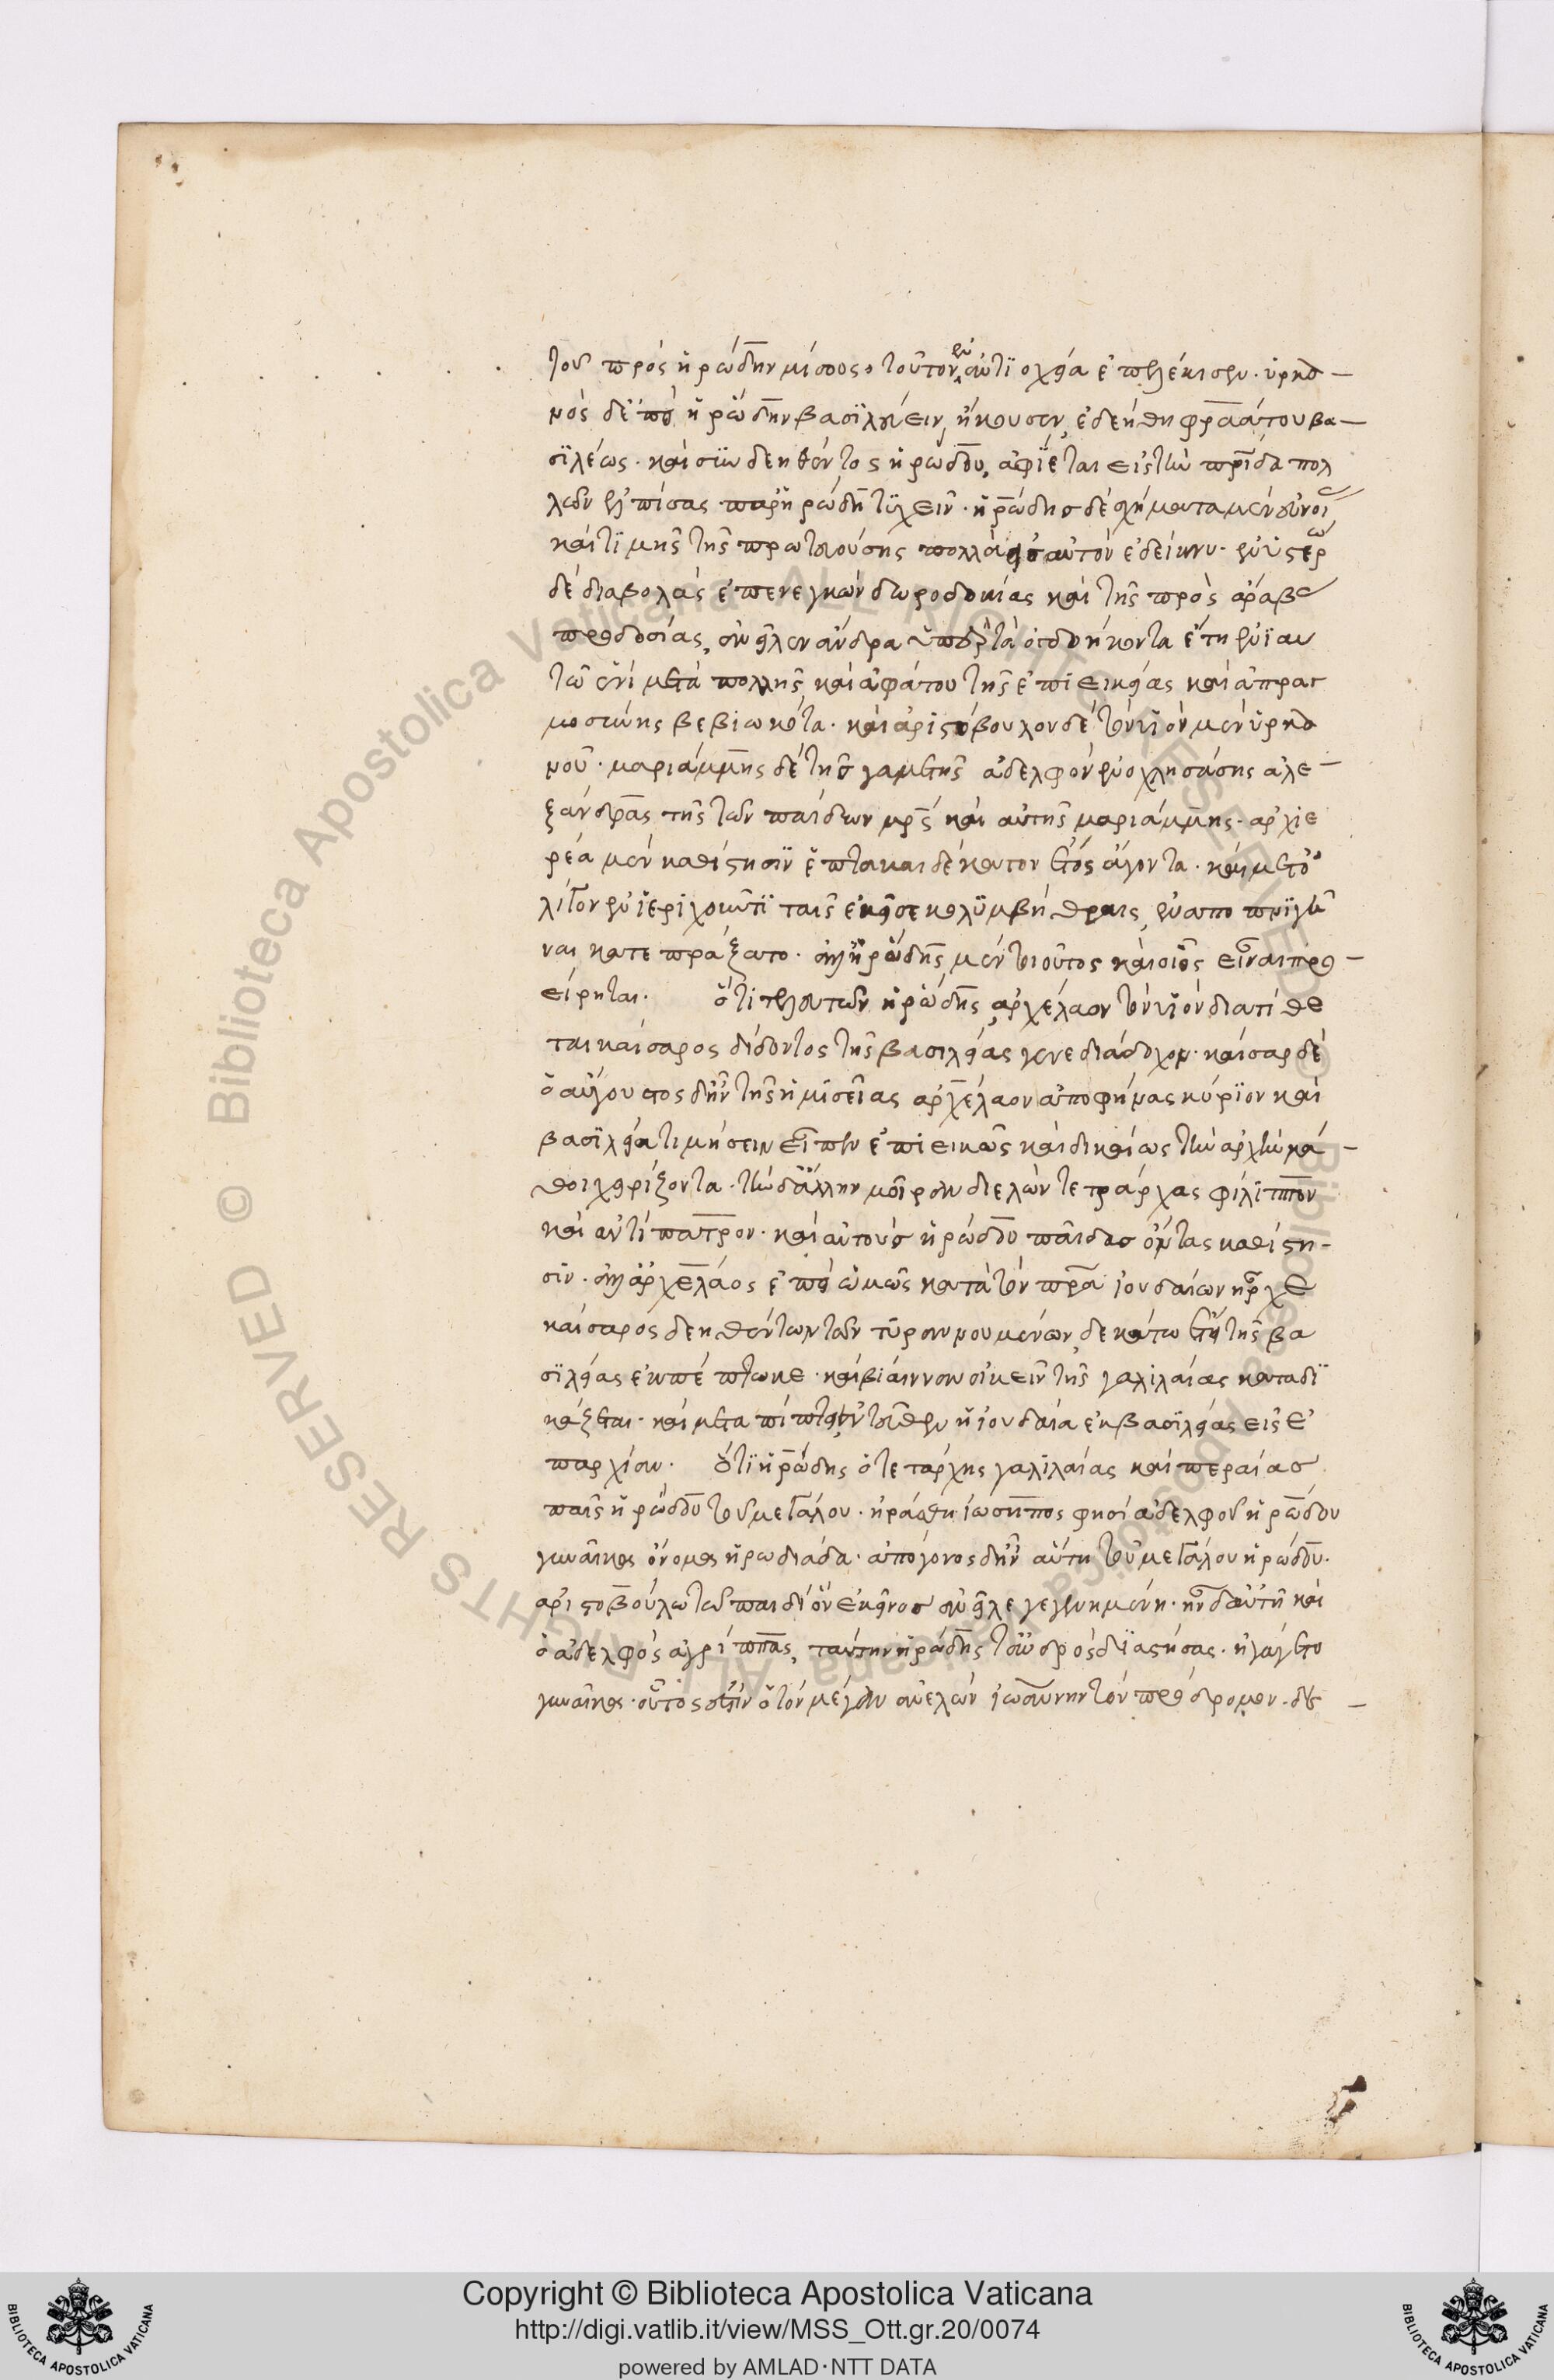 του πρὸς ἡρώδην μίσους. τοῦτον ἐν ἀντιοχεία ἐπελέκισεν. ὑρκα
νὸς δὲ ἐπεὶ ἡρώδην βασιλεύειν ἤκουσεν, ἐδεήθη φραάτου βα
σιλέως. καὶ συνδεηθέντος ἡρώδου, ἀφίεται εἰς τὴν πατρίδα πολ
λῶν ἐλπίσας παρ' ἡρώδη τυχεῖν. ἡρώδης δὲ σχήματα μὲν εὐνοί
καὶ τιμῆς τῆς πρωτευούσης πολλὰ εἰς αὐτὸν ἐδείκνυ. ἐν ὑστέρω
δὲ διαβολὰς ἐπενεγκὼν δωροδοκίας καὶ τῆς πρὸς ἄραβας
προδοσίας, ἀνεῖλεν ἄνδρα ὑπὲρ τὰ ὀγδοήκοντα ἔτη ἐνιαυ
τῶ ἑνὶ μετὰ πολλῆς καὶ ἀφάτου τῆς ἐπιεικείας καὶ ἀπραγ
μοσύνης βεβιωκότα. καὶ ἀριστόβουλον δὲ τὸν υἱὸν μὲν ὑρκα
νοῦ. μαριάμμης δὲ τῆς γαμετῆς ἀδελφὸν ἐνοχλησάσης ἀλε
ξάνδρας τῆς τῶν παίδων μητρὸς καὶ αὐτῆς μαριάμμης. ἀρχιε
ρέα μὲν καθίστησιν ἑπτακαιδέκατον ἔτος ἄγοντα. καὶ μετ' ὀ
λίγον ἐν ἱεριχοῦντι ταῖς ἐκεῖσε κολυμβήθραις, ἐναποπνιγῆ
ναι κατεπράξατο. ἀλλ' ἡρώδης μὲν τοιοῦτος καὶ οἷος εἶναι προ
είρηται. ὅτι τελευτῶν ἡρώδης, ἀρχέλαον τὸν υἱὸν διατίθε
ται καίσαρος διδόντος τῆς βασιλείας γενέ διάδοχον. καίσαρ δὲ
ὁ αὔγουστος δ' ἦν τῆς ἡμισείας ἀρχέλαον ἀποφήμας κύριον καὶ
βασιλέα τιμήσειν εἶπεν ἐπιεικῶς καὶ δικαίως τὴν ἀρχὴν κα
θοι χειρίζοντα. τὴν δ' ἄλλην μοῖραν διελὼν τετράρχας φίλιππον
καὶ ἀντίπατρον. καὶ αὐτοὺς ἡρώδου παῖδας ὄντας καθίστη
σιν. ἀλλ' ἀρχέλαος ἐπεὶ ὠμῶς κατὰ τὸν πατέρα ἰουδαίων ἦρχε
καίσαρος δεηθέντων τῶν τυραννουμένων, δεκάτω ἔτει τῆς βα
σιλείας ἐκπέπτωκε. καὶ βίανναν οἰκεῖν τῆς γαλιλαίας καταδι
κάζεται. καὶ μεταπίπτει ἐντεῦθεν ἡ ἰουδαία ἐκ βασιλείας εἰς ἐ
παρχίαν. ὅτι ἡρώδης ὁ τετάρχης γαλιλαίας καὶ περαίας
παῖς ἡρώδου τοῦ μεγάλου. ἠράσθη ἰώσηπος φησὶ ἀδελφοῦ ἡρώδου
γυναῖκα ὄνομα ἡρωδιάδα. ἀπόγονος δ' ἦν αὕτη τοῦ μεγάλου ἡρώδου.
ἀριστοβούλω τῶ παιδὶ ὃν ἐκεῖνος ἀνεῖλε γεγενημένη. ἦν δ' αὐτῆ καὶ
ὁ ἀδελφὸς ἀγρίππας, ταύτην ἡρώδης τἀνδρὸς διαστήσας. ἠγάγετο
γυναῖκα. οὗτος ἐστὶν ὁ τὸν μέγαν ἀνελὼν ἰωάννην τὸν πρόδρομον. δε
Copyright © Biblioteca Apostolica Vaticana
http://digi.vatlib.it/view/MSS_Ott.gr.20/0074
powered by AMLAD·NTT DATA